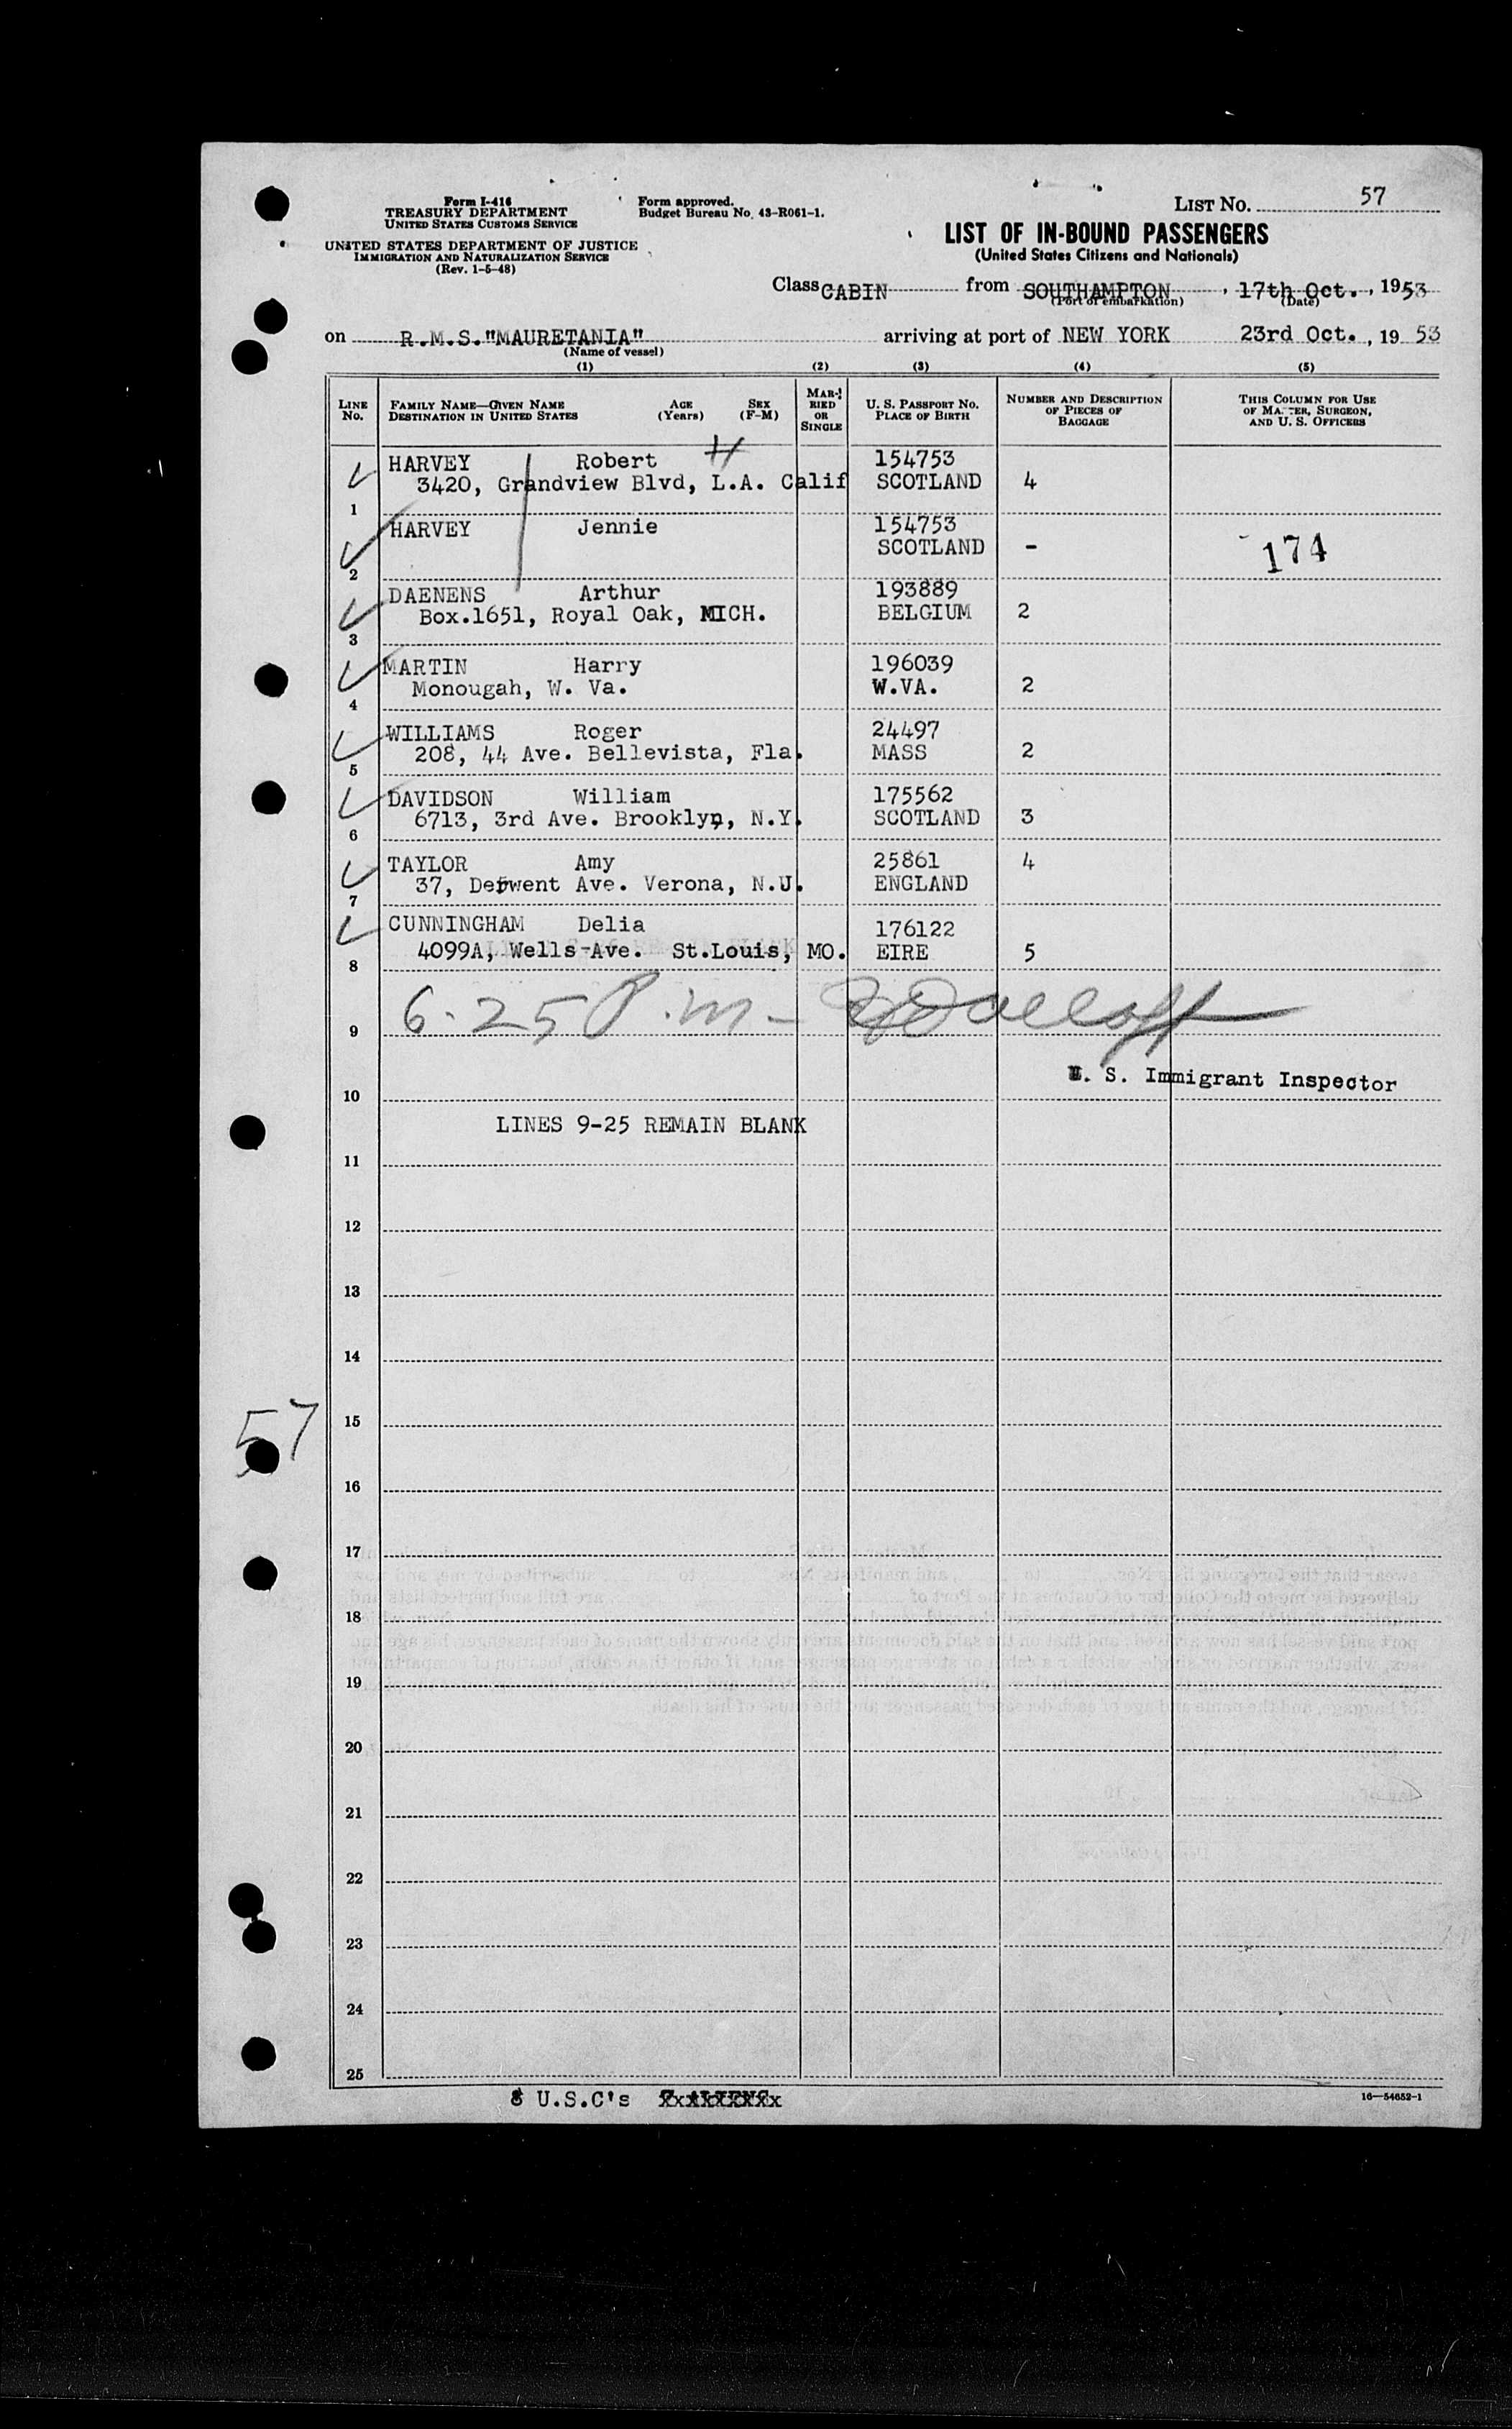 Form I-416
TREASURY DEPARTMENT
UNITED STATES CUSTOMS SERVICE
UNITED STATES DEPARTMENT OF JUSTICE
IMMIGRATION AND NATURALIZATION SERVICE
(Rev. 1-5-48)
Form approved.
Budget Bureau No. 43-R061-1.
LIST NO. 57
LIST OF IN-BOUND PASSENGERS
(United States Citizens and Nationals)
Class CABIN from SOUTHAMPTON, 17th Oct., 1953
(Port of embarkation) (Date)
on R.M.S."MAURETANIA" arriving at port of NEW YORK 23rd Oct., 19 53
(Name of vessel)
(1) (2) (3) (4) (5)
LINE NO. FAMILY NAME—GIVEN NAME DESTINATION IN UNITED STATES AGE (Years) SEX (F-M) MARRIED OR SINGLE U. S. PASSPORT NO. PLACE OF BIRTH NUMBER AND DESCRIPTION OF PIECES OF BAGGAGE THIS COLUMN FOR USE OF MASTER, SURGEON, AND U. S. OFFICERS
HARVEY Robert 154753
3420, Grandview Blvd, L.A. Calif SCOTLAND 4
1
HARVEY Jennie 154753
SCOTLAND - 174
2
DAENENS Arthur 193889
Box.1651, Royal Oak, MICH. BELGIUM 2
3
MARTIN Harry 196039
Monougah, W. Va. W.VA. 2
4
WILLIAMS Roger 24497
208, 44 Ave. Bellevista, Fla. MASS 2
5
DAVIDSON William 175562
6713, 3rd Ave. Brooklyn, N.Y. SCOTLAND 3
6
TAYLOR Amy 25861 4
37, Derwent Ave. Verona, N.U. ENGLAND
7
CUNNINGHAM Delia 176122
4099A, Wells-Ave. St.Louis, MO. EIRE 5
8
6.25 P.m-
9
U. S. Immigrant Inspector
10
LINES 9-25 REMAIN BLANK
11
12
13
14
57
15
16
17
18
19
20
21
22
23
24
25
8 U.S.C's
16—54652-1